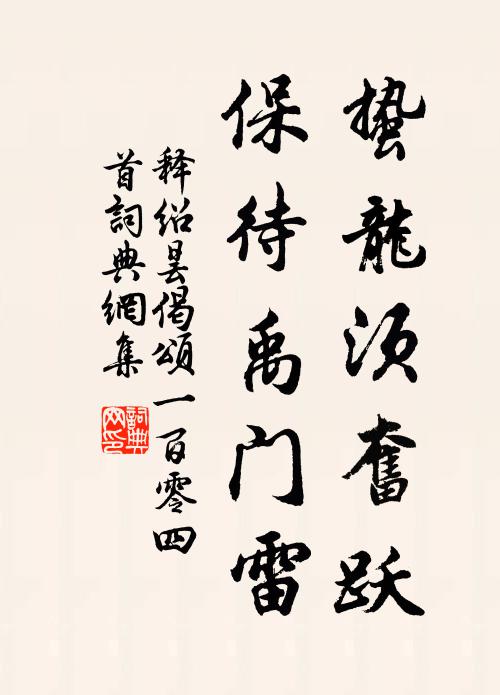 蛰龍须奮跃
保待禹门雷
释绍昙偈頌一百零四
首詞典網集
詞典网印